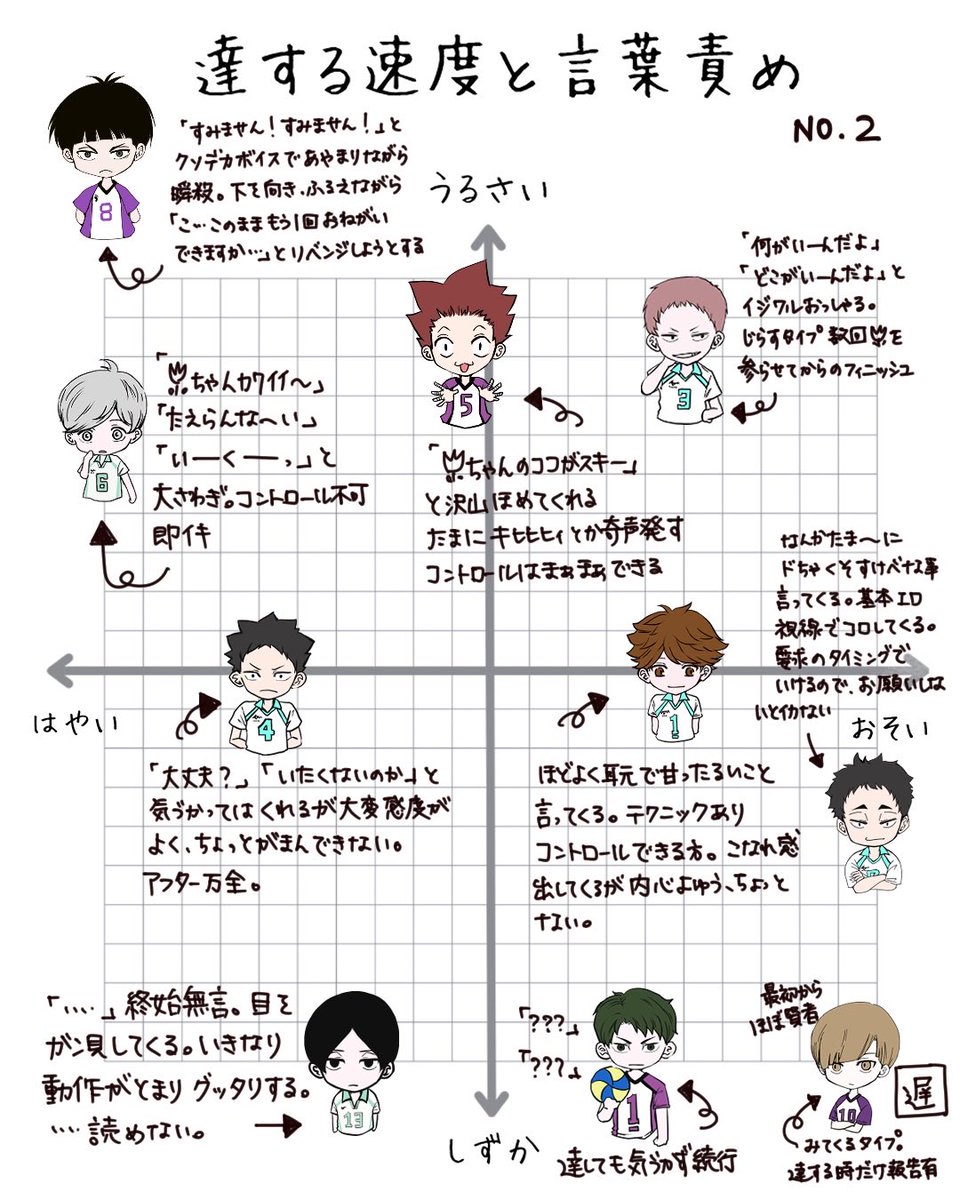 達する速度と言葉責め
NO.2
「すみません!すみません!」と
クソデカボイスであやまりながら
瞬殺。下を向き、ふるえながら
「こ…このままもう1回おねがい
できますか…」とリベンジしようとする
8
うるさい
「何がいーんだよ」
「どこがいーんだよ」と
イジワルおっしゃる。
じらすタイプ 数回🌷を
参らせてからのフィニッシュ
3
5
「🌷ちゃんカワイイ〜」
「たえらんな〜い」
「いーくーっ」と
大さわぎ。コントロール不可
即イキ
6
「🌷ちゃんのココがスキー」
と沢山ほめてくれる
たまにキヒヒヒィとか奇声発す
コントロールはまぁまぁできる
なんかたま〜に
ドちゃくそすけべな事
言ってくる。基本エロ
視線でコロしてくる。
要求のタイミングで
いけるので、お願いしな
いとイかない
はやい
おそい
4
1
「大丈夫?」「いたくないのか」と
気づかってはくれるが大変感度が
よく、ちょっとがまんできない。
アフター万全。
ほどよく耳元で甘ったるいこと
言ってくる。テクニックあり
コントロールできる方。こなれ感
出してくるが内心よゆう、ちょっと
ない。
「….」終始無言。目を
ガン見してくる。いきなり
動作がとまりグッタリする。
…読めない。
13
しずか
「???」
「???」
1
達しても気づかず続行
最初から
ほぼ賢者
10
遅
みてくるタイプ。
達する時だけ報告有